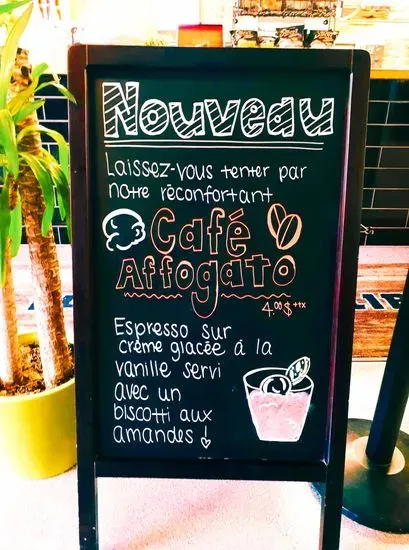 Nouveau
Laissez-vous tenter par
notre réconfortant
Café
Affogato
4.00$ +tx
Espresso sur
crème glacée á la
vanille servi
avec un
biscotti aux
amandes!